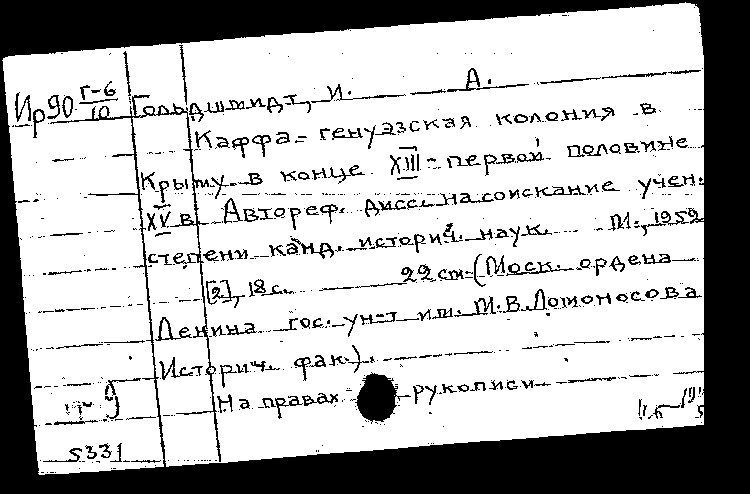 Ир90 Г-6/10 Гольдшмидт, И. А.
Каффа - генуэзская колония в
Крыму в конце XIII - первой половине
XV в. Автореф. дисс. на соискание учен.
степени канд. историч. наук. М., 1952
[2], 18 с. 22 см (Моск. ордена
Ленина гос. ун-т им. М.В.Ломоносова
Историч. фак.).
На правах рукописи
9
5331